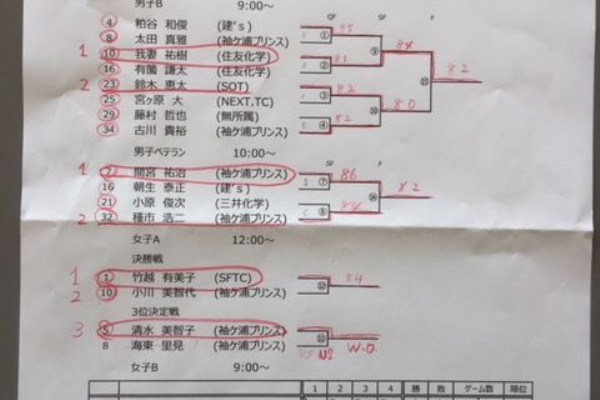 男子B 9:00～
4 粕谷 和俊 (建's)
8 太田 真雅 (袖ケ浦プリンス)
1 10 我妻 祐樹 (住友化学)
16 有薗 謙太 (住友化学)
2 23 鈴木 恵太 (SOT)
25 宮ヶ原 大 (NEXT.TC)
29 藤村 哲也 (無所属)
34 古川 貴裕 (袖ケ浦プリンス)
QF SF F
85
① ⑨ 84
② 81
82
③ 82 ⑩ 80
④ 82
男子ベテラン 10:00～
1 7 間宮 祐治 (袖ケ浦プリンス)
16 朝生 泰正 (建's)
21 小原 俊次 (三井化学)
2 32 種市 浩二 (袖ケ浦プリンス)
SF F
⑦ 86
82
⑧
女子A 12:00～
決勝戦
1 1 竹越 有美子 (SFTC)
2 10 小川 美智代 (袖ケ浦プリンス)
84
3位決定戦
3 5 清水 美智子 (袖ケ浦プリンス)
8 海東 里見 (袖ケ浦プリンス)
W.O.
女子B 9:00～
1 2 3 4 勝 敗 ゲーム数 順位